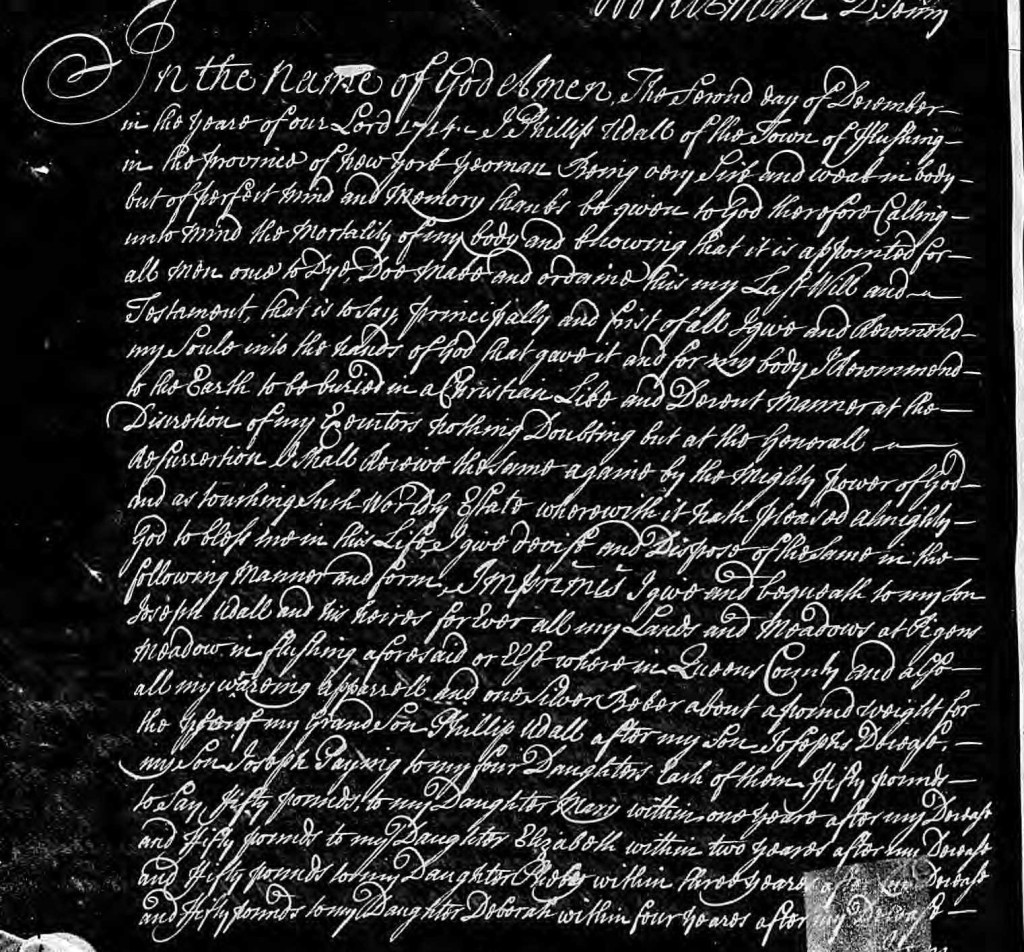 In the Name of God Amen, The Second day of December
in the yeare of our Lord 1714 I Phillip Udall of the Town of flushing
in the province of New York yeoman Being very Sick and weak in body
but of perfect mind and Memory thanks be given to God therefore Calling
unto mind the Mortality of my body and knowing that it is appointed for
all men once to Dye, Doe make and ordaine this my Last Will and
Testament, that is to say, principally and first of all I give and Recomend
my Soule into the hands of God that gave it and for my body I Recommend
to the Earth to be buried in a Christian Like and Decent Manner at the
Discretion of my Executors nothing Doubting but at the Generall
Resurrection I shall Receive the same againe by the Mighty power of God
and as touching Such Worldly Estate wherewith it hath pleased almighty
God to bless me in this Life, I give devise and Dispose of the same in the
following Manner and form, Imprimis I give and bequeath to my son
Joseph Udall and his heires forever all my Lands and Meadows at Pigens
Meadow in flushing aforesaid or Else where in Queens County and also
all my wareing apparrell and one Silver Beker about a pound weight for
the use of my Grand Son Phillip Udall after my Son Josephs Decease,
my Son Joseph Paying to my four Daughters Each of them fifty pounds
to Say, fifty pounds to my Daughter Mary within one yeare after my Decease
and fifty pounds to my Daughter Elizabeth within two yeares after my Decease
and fifty pounds to my Daughter Pheby within three yeares after my Decease
and fifty pounds to my Daughter Deborah within four yeares after my Decease